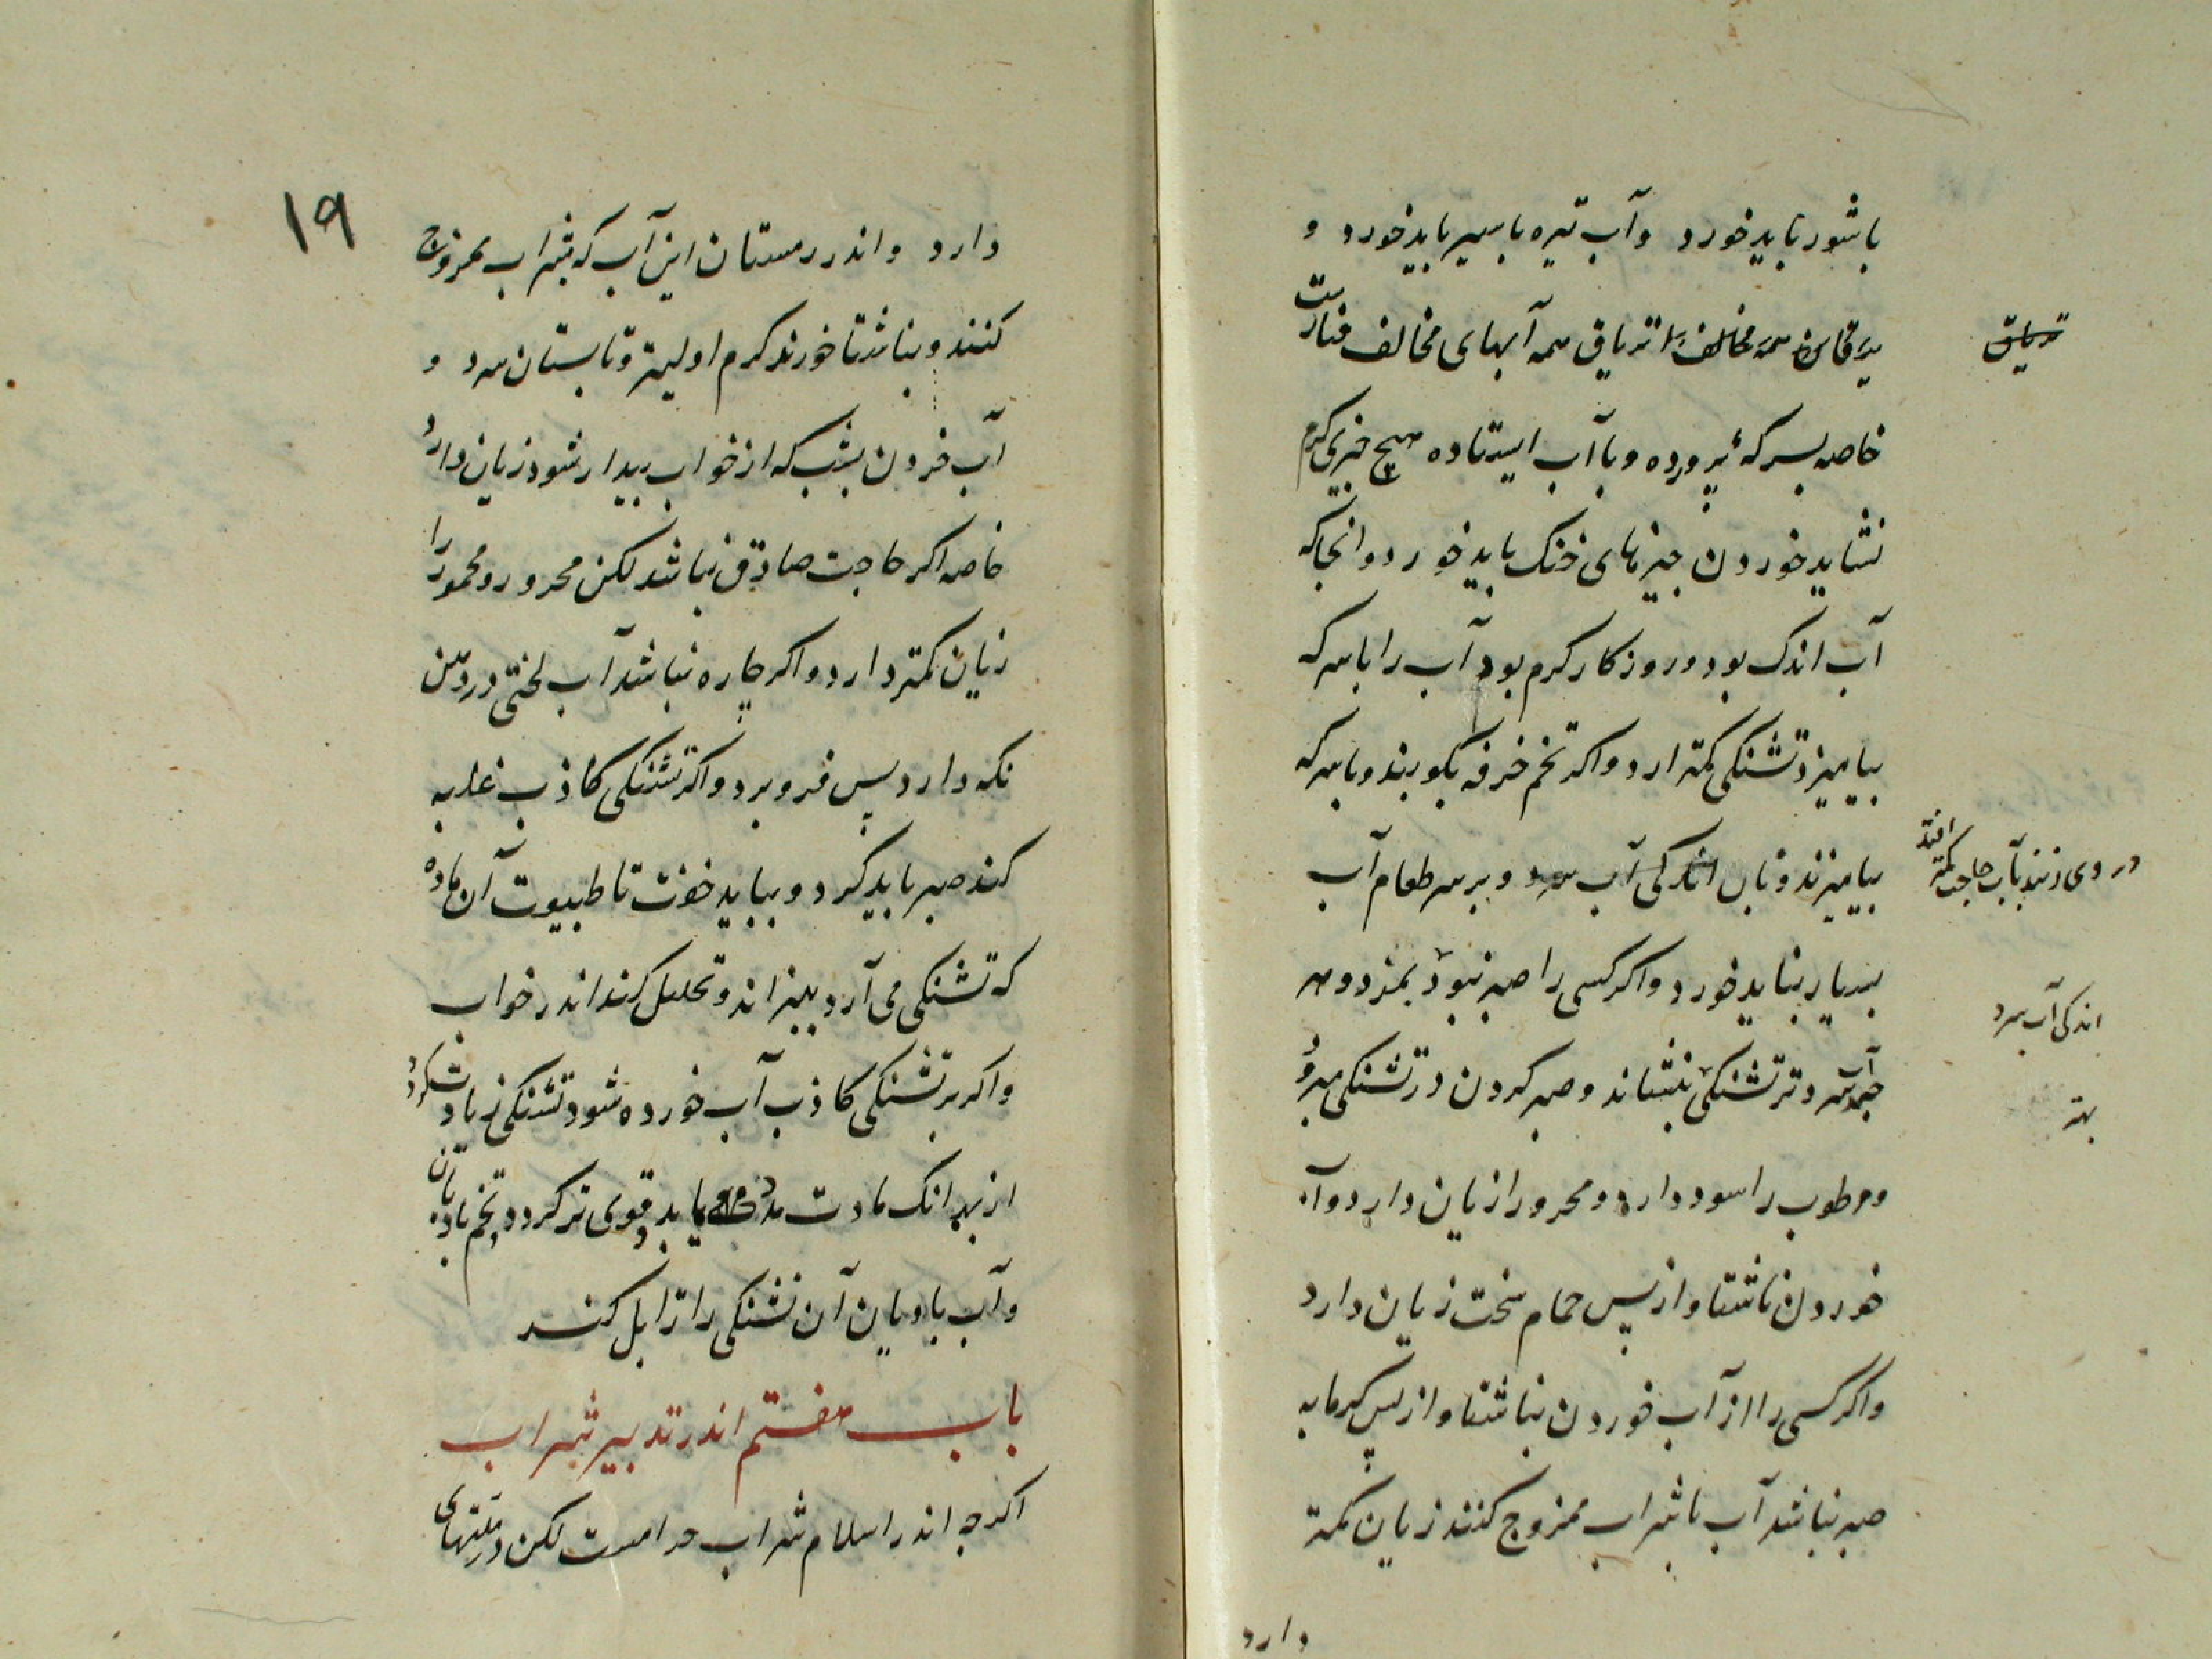 باشور باید خورد و آب تیره باسیر باید خورد و
همه مخالف را تریاق همه آبهای مخالف
تریاق
خاصه بسرکه پرورده و با آب ایستاده هیچ چیزی کرم
نشاید خوردن چیزهای خنک باید خورد و انجا که
آب اندک بود و روزکار کرم بود آب را با سرکه
بیامیزند تشنکی کمتر ارد و اکر تخم خرفه بکوبند و با سرکه
بیامیزند و نان اندکی آب سرد و بر سر طعام آب
در وی زنند بآب حاجت کمتر افتد
بسیار نباید خورد و اکر کسی را صبر نبود بمزد و هر
اندکی آب سرد
آب سردتر تشنکی بنشاند و صبر کردن در تشنکی مبرود
بهتر
و مرطوب را سود دارد و محرور را زیان دارد و آب
خوردن ناشتا و از پس حمام سخت زیان دارد
و اکر کسی را از آب خوردن بناشتا و از پس کرمابه
صبر نباشد آب با شراب ممزوج کنند زیان کمتر
دارد
۱۹
دارد و اندر زمستان این آب که بشراب ممزوج
کنند و بناشتا خورند کرم اولیتر و تابستان سرد و
آب خوردن بشب که از خواب بیدار شود زیان دارد
خاصه اکر حاجت صادق نباشد لکن محرور و مخمور را
زیان کمتر دارد و اکر چاره نباشد آب لختی در دهن
نکه دارد پس فرو برد و اکر تشنکی کاذب غلبه
کند صبر باید کرد و بباید خفت تا طبیعت آن ماده
که تشنکی می آرد بپزاند و تحلیل کند اندر خواب
و اکر بر تشنکی کاذب آب خورده شود تشنکی زیادت کردد
از بهر انک مادت مدد یابد و قوی تر کردد و تخم بادیان
و آب بادیان آن تشنکی را زایل کند
باب هفتم اندر تدبیر شراب
اکرچه اندر اسلام شراب حرامست لکن در ملتهای